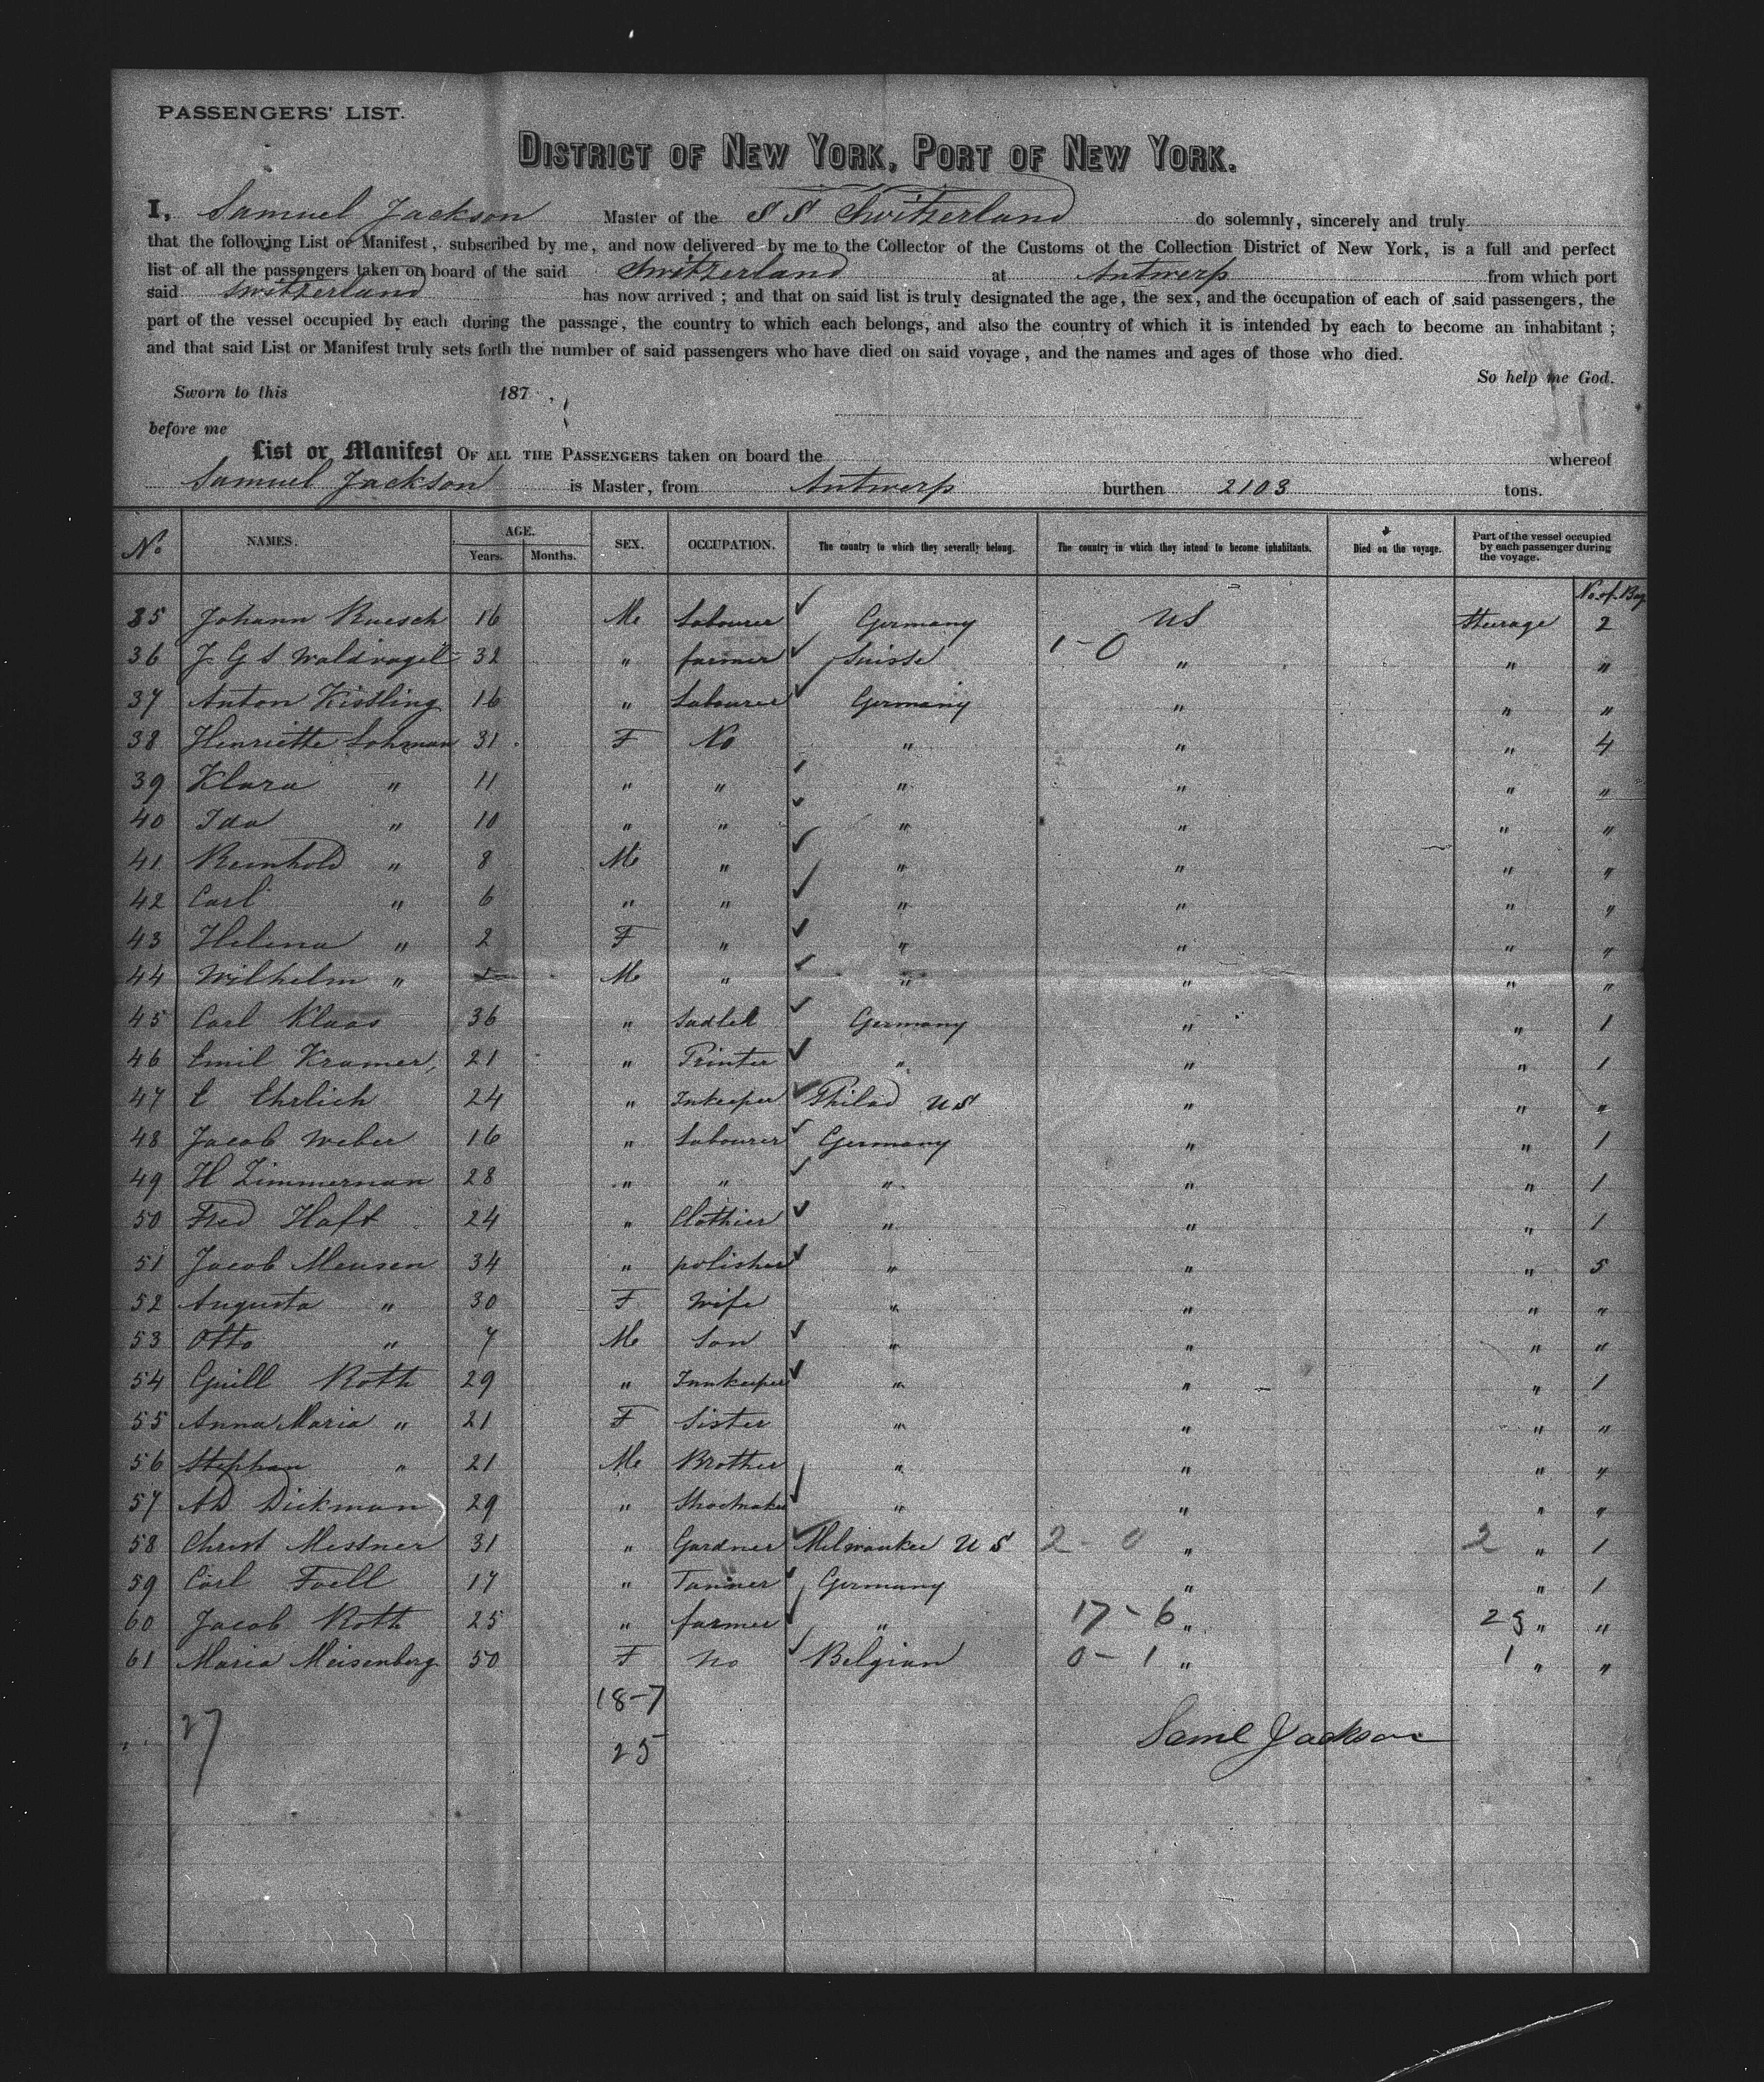 PASSENGERS' LIST.
DISTRICT OF NEW YORK, PORT OF NEW YORK.
I, Samuel Jackson Master of the S S Switzerland do solemnly, sincerely and truly
that the following List or Manifest, subscribed by me, and now delivered by me to the Collector of the Customs of the Collection District of New York, is a full and perfect
list of all the passengers taken on board of the said Switzerland at Antwerp from which port
said Switzerland has now arrived; and that on said list is truly designated the age, the sex, and the occupation of each of said passengers, the
part of the vessel occupied by each during the passage, the country to which each belongs, and also the country of which it is intended by each to become an inhabitant;
and that said List or Manifest truly sets forth the number of said passengers who have died on said voyage, and the names and ages of those who died.
So help me God.
Sworn to this 187
before me
List or Manifest OF ALL THE PASSENGERS taken on board the whereof
Samuel Jackson is Master, from Antwerp burthen 2103 tons.
No NAMES. AGE. Years. Months. SEX. OCCUPATION. The country to which they severally belong. The country in which they intend to become inhabitants. Died on the voyage. Part of the vessel occupied by each passenger during the voyage.
No. of Bag
35 Johann Ruesch 16 M Labourer Germany US Steerage 2
36 J G S Waldvogel 32 " farmer Suisse 1-0 " " "
37 Anton Kistling 16 " Labourer Germany " " "
38 Henriette Lohman 31 F No " " " 4
39 Klara " 11 " " " " " "
40 Ida " 10 " " " " " "
41 Reinhold " 8 M " " " " "
42 Carl " 6 " " " " " "
43 Helena " 2 F " " " " "
44 Wilhelm " M " " " " "
45 Carl Klaas 36 " Sadlel Germany " " 1
46 Emil Kramer, 21 " Printer " " " 1
47 E Ehrlich 24 " Inkeeper Philad US " " "
48 Jacob Weber 16 " Labourer Germany " " 1
49 H Zimmerman 28 " " " " " 1
50 Fred Haft 24 " Clothier " " " 1
51 Jacob Meusen 34 " polisher " " " 5
52 Augusta " 30 F Wife " " " "
53 Otto " 7 M Son " " " "
54 Guill Roth 29 " Innkeeper " " " 1
55 Anna Maria " 21 F Sister " " " "
56 Stephan " 21 M Brother " " " "
57 AD Dickman 29 " Shoemaker " " " "
58 Christ Messner 31 " Gardner Milwaukee US 2-0 " 2 " 1
59 Carl Foell 17 " Tanner Germany " " 1
60 Jacob Roth 25 " farmer " 17-6 " 23 " "
61 Maria Meisenberg 50 F No Belgian 0-1 " 1 " "
18-7
27 25 Saml Jackson